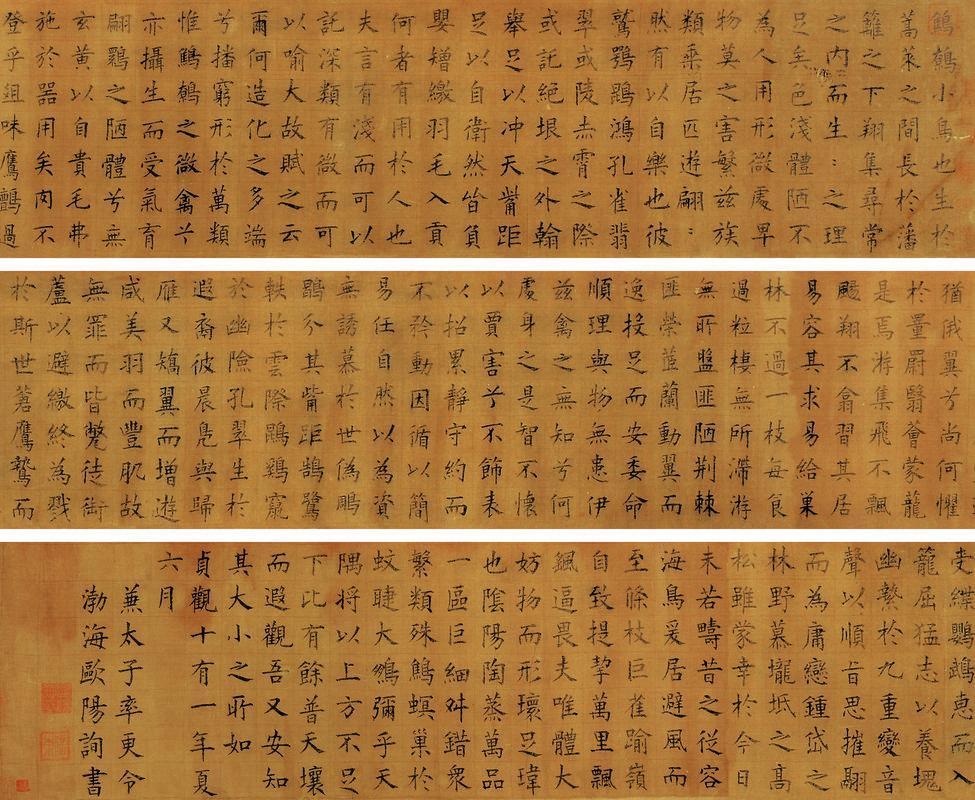 鷦鷯小鳥也生於
蒿萊之間長於藩
籬之下翔集尋常
之内而生〻之理
足矣色淺體陋不
為人用形微處卑
物莫之害繁茲族
類乘居匹遊翩〻
然有以自樂也彼
鷲鶚鵾鴻孔雀翡
翠或陵赤霄之際
或託絕垠之外翰
舉足以冲天觜距
足以自衛然皆負
嬰矰繳羽毛入貢
何者有用於人也
夫言有淺而可以
託深類有微而可
以喻大故賦之云
爾何造化之多端
兮播窮形於萬類
惟鷦鷯之微禽兮
亦攝生而受氣育
翩之陋體兮無
玄黃以自貴毛弗
施於器用矣肉不
登乎俎味鷹鸇過
猶俄翼兮尚何懼
於罿罻翳薈蒙蘢
是焉游集飛不飄
颺翔不翕習其居
易容其求易給巢
林不過一枝每食
過粒棲無所滯游
無所盤匪陋荊棘
匪榮茝蘭動翼而
逸投足而安委命
順理與物無患伊
茲禽之無知兮何
處身之是智不懷
以賈害兮不飾表
以招累靜守約而
不矜動因循以簡
易任自然以為資
無誘慕於世偽鵰
鶡介其觜距鵠鷺
軼於雲際鵾鷄竄
於幽險孔翠生於
遐裔彼晨鳧與歸
雁又矯翼而增遊
咸美羽而豐肌故
無罪而皆斃徒銜
蘆以避繳終為戮
於斯世蒼鷹鷙而
受緤鸚鵡惠而入
籠屈猛志以養塊
幽縶於九重變音
聲以順旨思摧翮
而為庸戀鍾岱之
林野慕壠坻之高
松雖蒙幸於今日
未若疇昔之從容
海鳥爰居避風而
至條枝巨雀踰嶺
自致提挈萬里飄
颻逼畏夫唯體大
妨物而形瓌足瑋
也陰陽陶蒸萬品
一區巨細舛錯衆
繁類殊鷦螟巢於
蚊睫大鵬彌乎天
隅將以上方不足
下比有餘普天壤
而遐觀吾又安知
其大小之所如
貞觀十有一年夏
六月
兼太子率更令
渤海歐陽詢書